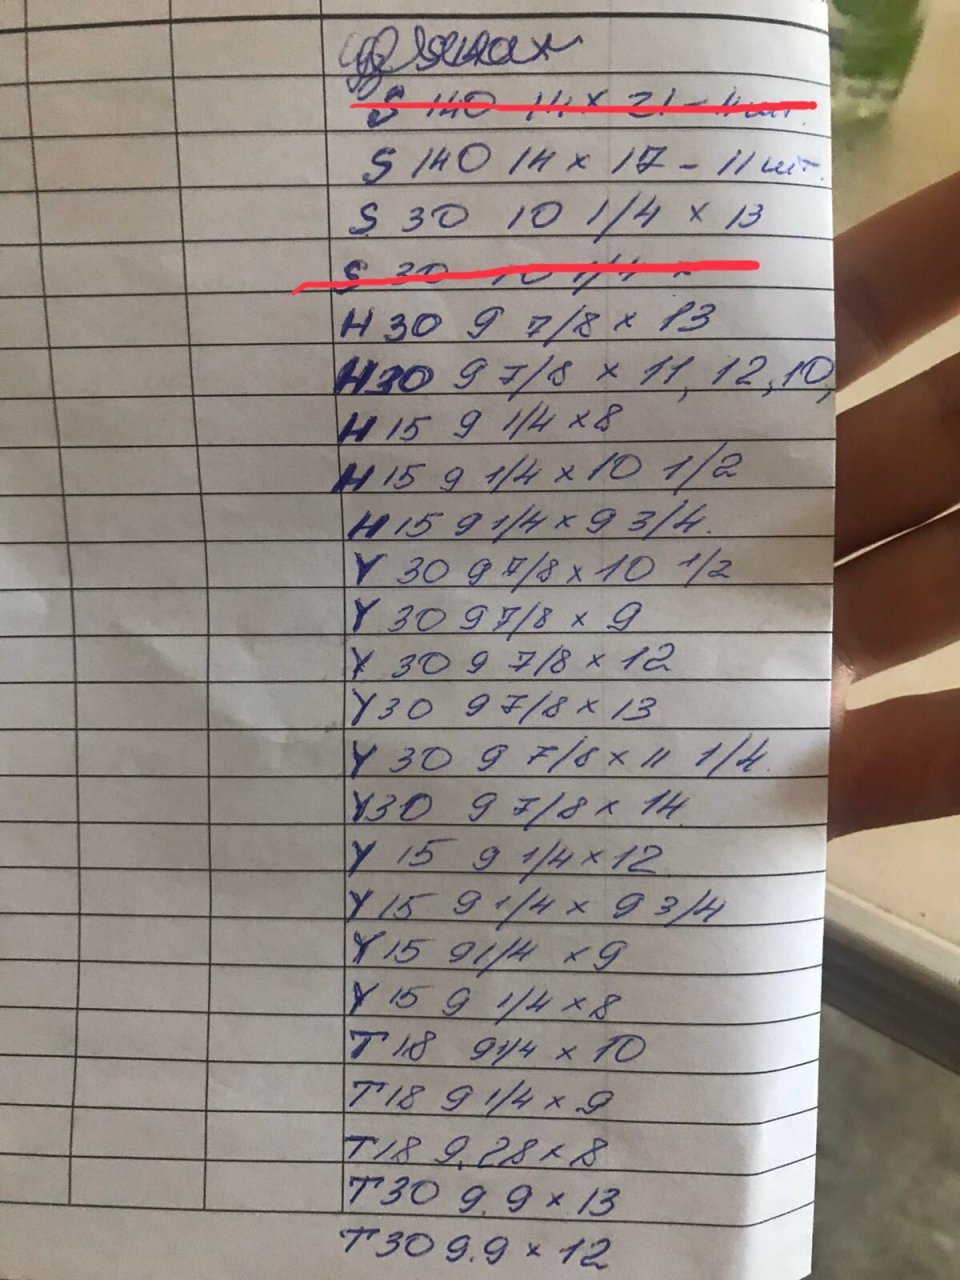 S 140 14 x 21 - 11 шт.
S 140 14 x 17 - 11 шт.
S 30 10 1/4 x 13
S 30 10 1/4 x
H 30 9 7/8 x 13
H30 9 7/8 x 11, 12, 10,
H 15 9 1/4 x 8
H 15 9 1/4 x 10 1/2
H 15 9 1/4 x 9 3/4.
Y 30 9 7/8 x 10 1/2
Y 30 9 7/8 x 9
Y 30 9 7/8 x 12
Y30 9 7/8 x 13
Y 30 9 7/8 x 11 1/4.
Y30 9 7/8 x 14
Y 15 9 1/4 x 12
Y 15 9 1/4 x 9 3/4
Y 15 9 1/4 x 9
Y 15 9 1/4 x 8
T 18 9 1/4 x 10
T 18 9 1/4 x 9
T 18 9.28 x 8
T 30 9.9 x 13
T 30 9.9 x 12